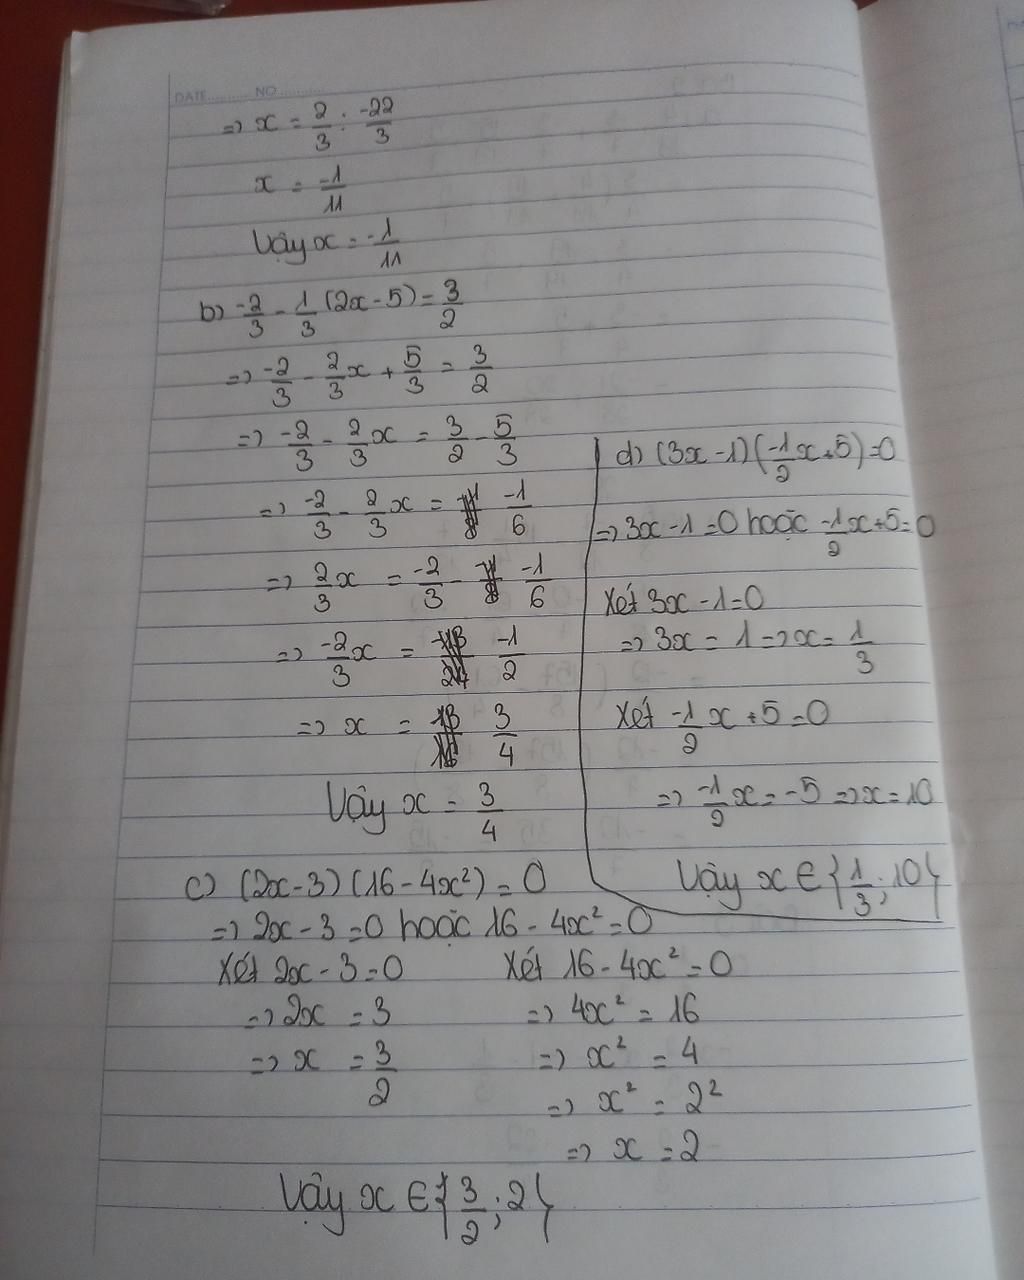 DATE.......... NO............
=> x = 2/3 : -22/3
x = -1/11
Vậy x = -1/11
b) -2/3 - 1/3 (2x - 5) = 3/2
=> -2/3 - 2/3 x + 5/3 = 3/2
=> -2/3 - 2/3 x = 3/2 - 5/3
=> -2/3 - 2/3 x = -1/6
=> 2/3 x = -2/3 - -1/6
=> -2/3 x = -1/2
=> x = 3/4
Vậy x = 3/4
c) (2x - 3) (16 - 4x²) = 0
=> 2x - 3 = 0 hoặc 16 - 4x² = 0
Xét 2x - 3 = 0
=> 2x = 3
=> x = 3/2
Xét 16 - 4x² = 0
=> 4x² = 16
=> x² = 4
=> x² = 2²
=> x = 2
Vậy x ∈ {3/2 ; 2}
d) (3x - 1) (-1/2 x + 5) = 0
=> 3x - 1 = 0 hoặc -1/2 x + 5 = 0
Xét 3x - 1 = 0
=> 3x = 1 => x = 1/3
Xét -1/2 x + 5 = 0
=> -1/2 x = -5 => x = 10
Vậy x ∈ {1/3 ; 10}